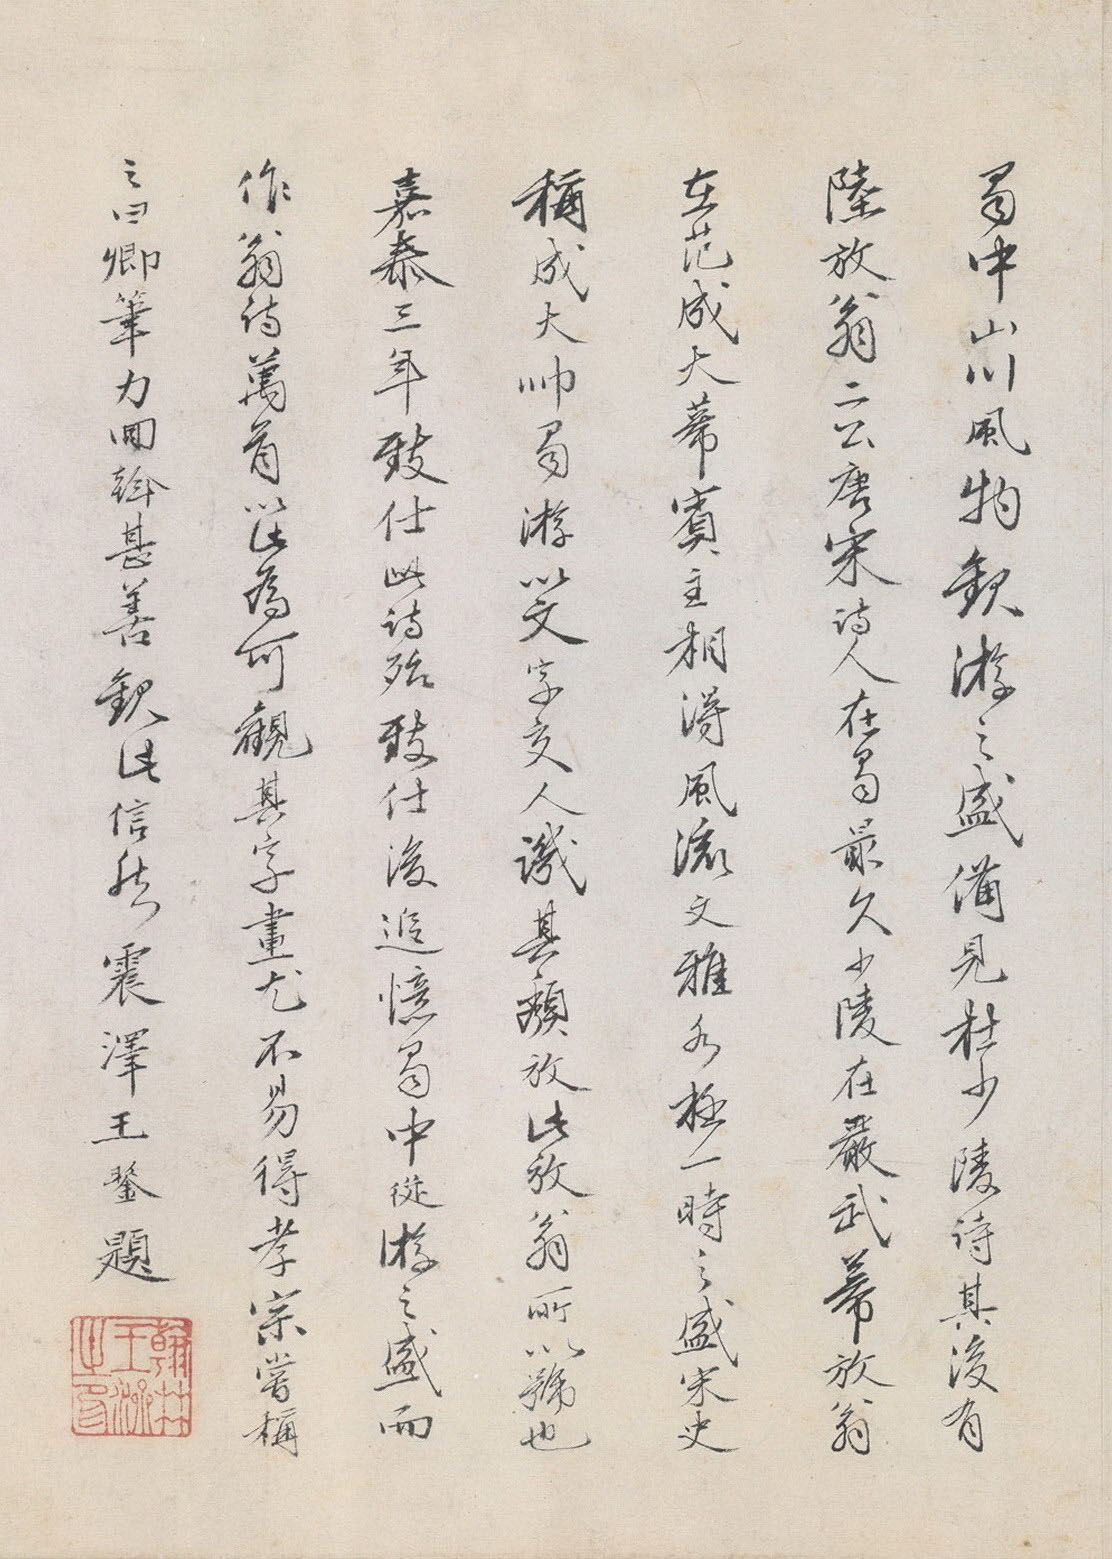 蜀中山川風物觀游之盛備見杜少陵詩其後有
陸放翁二公唐宋詩人在蜀最久少陵在嚴武幕放翁
在范成大幕賓主相得風流文雅亦極一時之盛宋史
稱成大帥蜀游以文字交人譏其頹放此放翁所以號也
嘉泰三年致仕此詩殆致仕後追憶蜀中從游之盛而
作翁詩萬首以此為可觀其字畫尤不易得孝宗嘗稱
之曰卿筆力回斡甚善觀此信然震澤王鏊題
翰林
王
之